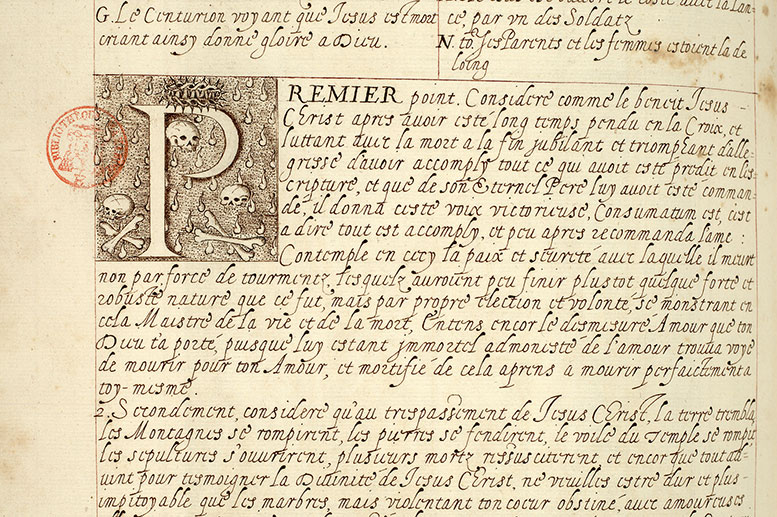 G. Le Centurion voyant que Jesus est mort
criant ainsy donne gloire a Dieu.
ce, par vn des Soldatz
N. to, ses Parents et les femmes estoient la de
loing
PREMIER point. Considere comme le beneit Jesus
Christ apres avoir esté long temps pendu en la Croix, et
luttant avec la mort a la fin jubilant et triomphant d'alle
gresse d'avoir accomply tout ce qui avoit esté predit en les
cripture, et que de son Eternel Pere luy avoit esté comman
dé, il donna ceste voix victorieuse, Consumatum est, c'est
a dire tout est accomply, et peu apres recommanda l'ame :
Contemple en cecy la paix et seureté avec laquelle il meurt
non par force de tourmentz, lesquelz auroient peu finir plustot quelque forte et
robuste nature que ce fut, mais par propre election et volonte, se monstrant en
cela Maistre de la vie et de la mort, Entens encor le desmesuré Amour que ton
Dieu t'a porté, puisque luy estant jmmortel admonesté de l'amour trouua voye
de mourir pour ton Amour, et mortifié de cela aprens a mourir perfaictement a
toy-mesme.
2. Secondement, considere qu'au trespassement de Jesus Christ, la terre trembla,
les Montagnes se rompirent, les pierres se fendirent, le voile du Temple se rompit
les sepultures s'ouvrirent, plusieurs mortz ressusciterent, et encor que tout ad-
uint pour tesmoigner la Divinité de Jesus Christ, ne vueilles estre dur et plus
impitoyable que les marbres, mais violentant ton coeur obstiné, avec amoureuses